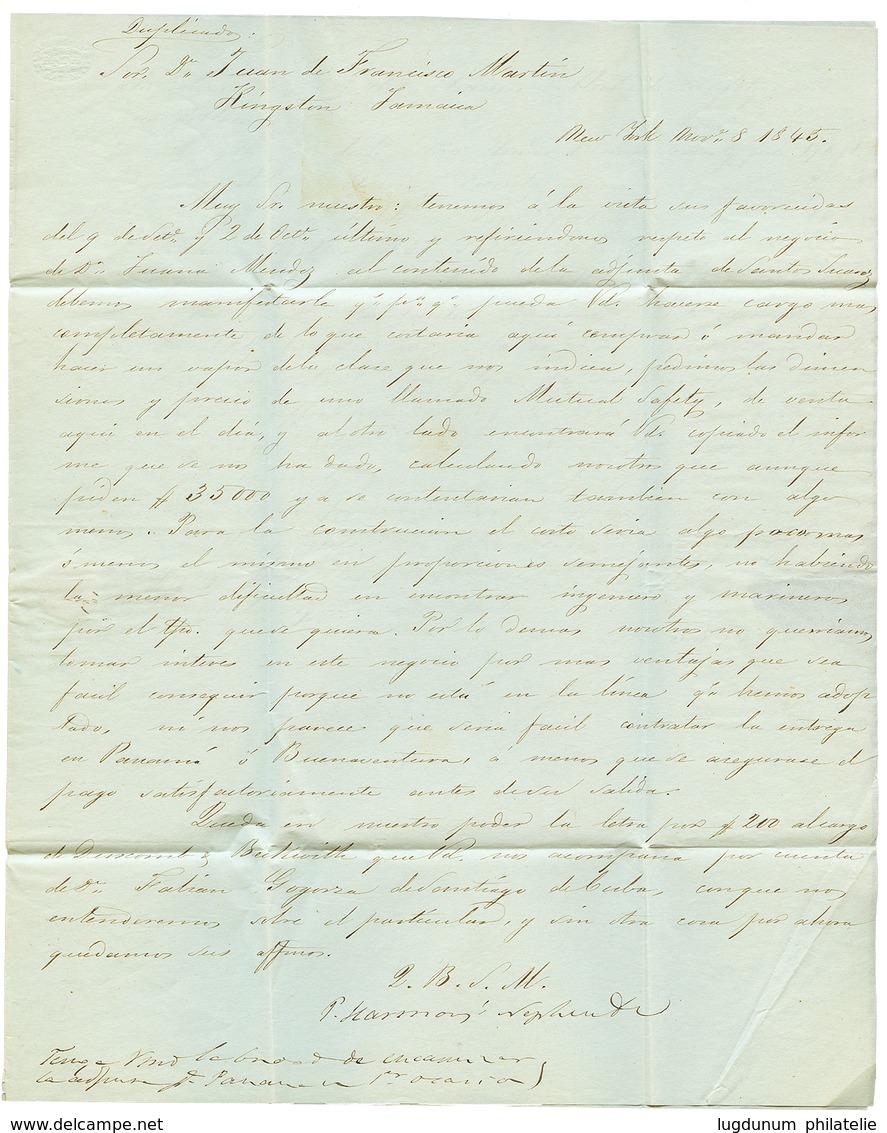 Duplicado.
Sor. Dn. Juan de Francisco Martin
Kingston Jamaica
New York Novr. 8 1845.
Muy Sr. nuestro: tenemos á la vista sus favorecidas
del 9 de Setr. y 2 de Octr. último y refiriendonos respeto al negocio
de Dn. Juana Mendoz al contenido dela adjunta de Santos Suarez
debemos manifestarle qe. pa. qe. pueda Vd. hacerse cargo mas
completamente de lo que costaria aqui comprar ó mandar
hacer un vapor dela clase que nos indica, pedimos las dimen
siones y precio de uno llamado Mutual Safety, de venta
aqui en el dia, y al otro lado encontrará Vd. copiado el infor
me que se nos ha dado, calculando nosotros que aunque
piden $ 35000 ya se contentarian tambien con algo
menos. Para la construccion el costo seria algo poco mas
ó menos el mismo en proporciones semejantes, no habiendo
la menor dificultad en encontrar ingeniero y marineros
por el tpo. que se quiera. Por lo demas nosotros no querriamos
tomar interes en este negocio por mas ventajas que sea
facil conseguir porque no está en la línea qe. hemos adop
tado, ni nos parece que seria facil contratar la entrega
en Panamá ó Buenaventura, á menos que se asegurase el
pago satisfactoriamente antes de su salida.
Queda en nuestro poder la letra por $ 200 al cargo
de Duscomb & Beckwith que Vd. nos acompaña por cuenta
de Dn. Fabian Gogorza de Santiago de Cuba, con que nos
entenderemos sobre el particular, y sin otra cosa por ahora
quedamos sus affmos.
Q. B. S. M.
P. Harmony's Nephews & Co
Tenga Vmd la bondad de encaminar
la adjunta pa. Panama en 1r. ocasion
lugdunum philatelie
www.delcampe.net